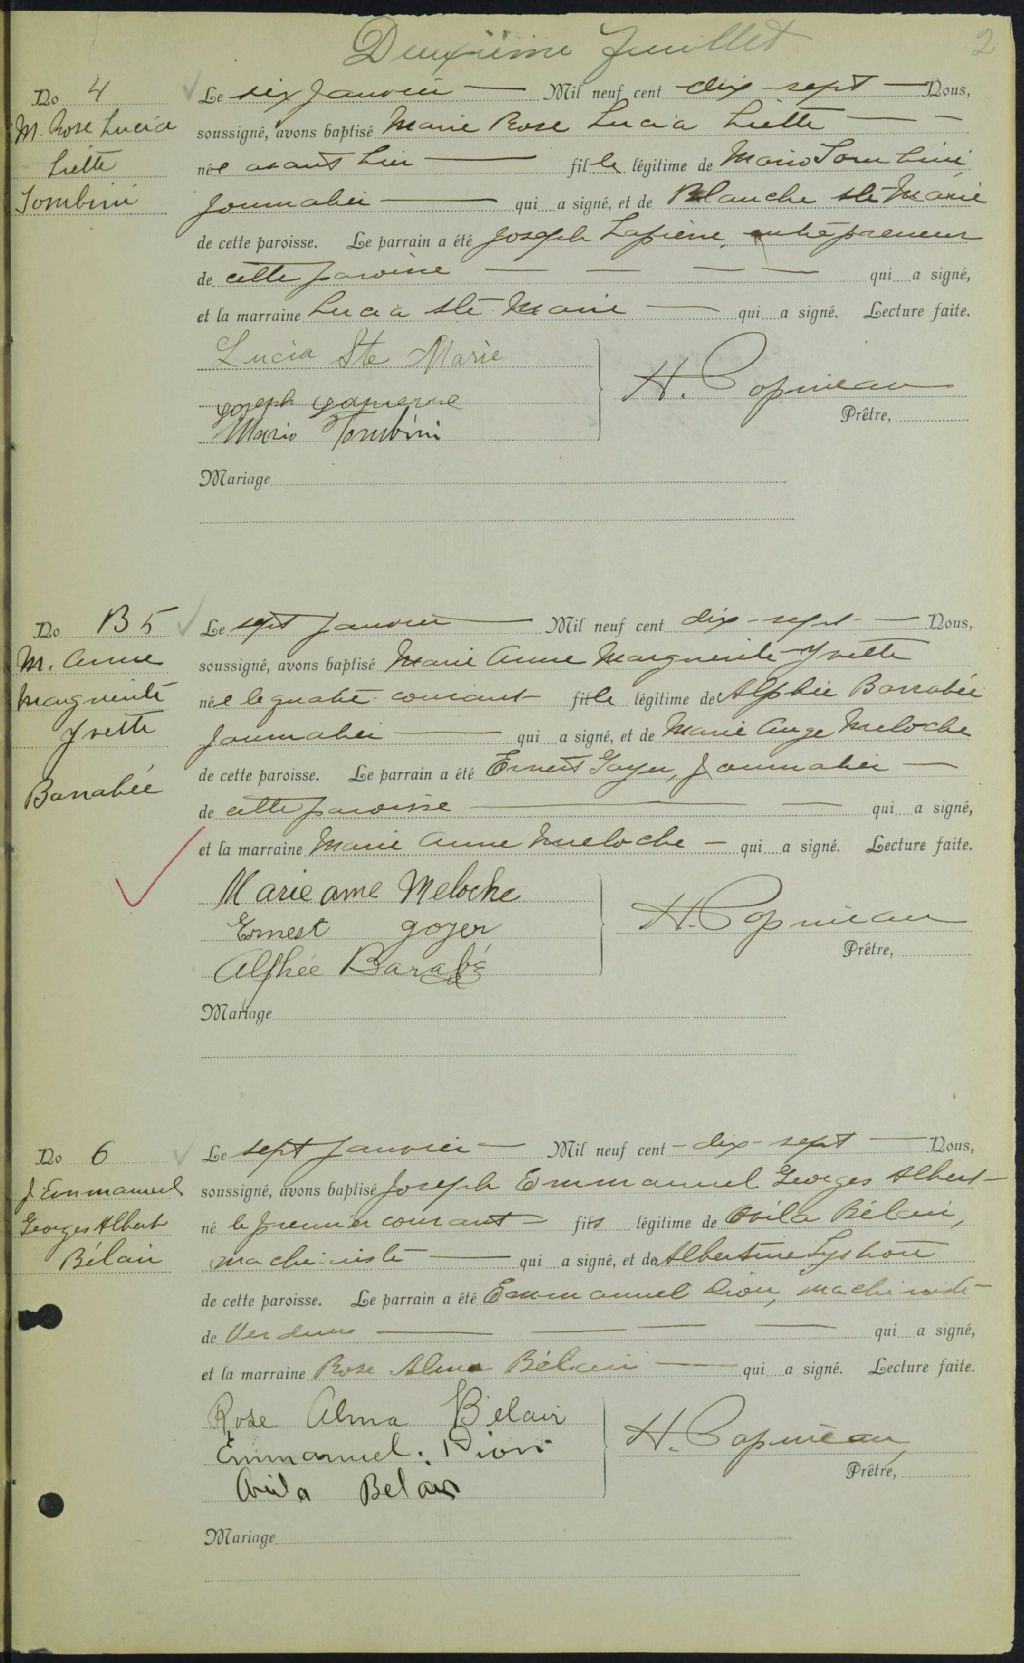 Deuxième Feuillet 2
No 4
M. Rose Lucia
Liette
Tombini
Le six Janvier — Mil neuf cent dix-sept — Nous,
soussigné, avons baptisé Marie Rose Lucia Liette — —
née avant hier — fille légitime de Mario Tombini
Journalier — qui a signé, et de Blanche Ste-Marie
de cette paroisse. Le parrain a été Joseph Lapierre, entrepreneur
de cette paroisse — — — — qui a signé,
et la marraine Lucia Ste-Marie — qui a signé. Lecture faite.
Lucia Ste Marie
Joseph
Mario Tombini
H. Papineau
Prêtre,
Mariage
No B 5
M. Anne
Marguerite
Yvette
Barrabée
Le sept Janvier — Mil neuf cent dix-sept — Nous,
soussigné, avons baptisé Marie Anne Marguerite Yvette
née le quatre courant fille légitime de Alphée Barrabée
Journalier — qui a signé, et de Marie Ange Meloche
de cette paroisse. Le parrain a été Ernest Goyer, Journalier —
de cette paroisse — — — qui a signé,
et la marraine Marie Anne Meloche — qui a signé. Lecture faite.
Marie ame Meloche
Ernest goyer
Alphée Barabé
H. Papineau
Prêtre,
Mariage
No 6
J. Emmanuel
Georges Albert
Bélair
Le sept Janvier — Mil neuf cent - dix-sept — Nous,
soussigné, avons baptisé Joseph Emmanuel Georges Albert —
né le premier courant — fils légitime de Ovila Bélair,
machiniste — qui a signé, et de Albertine
de cette paroisse. Le parrain a été Emmanuel Dion, machiniste
de Verdun — — — — qui a signé,
et la marraine Rose Alma Bélair — qui a signé. Lecture faite.
Rose Alma Bélair
Emmanuel Dion
Ovila Belair
H. Papineau,
Prêtre,
Mariage